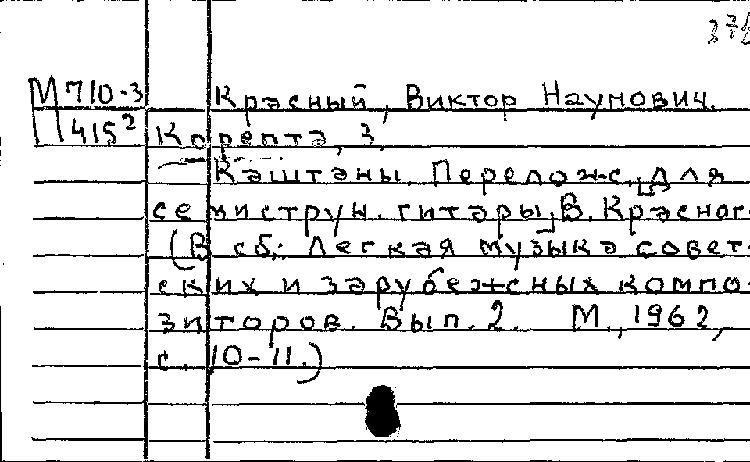 М 710-3 Красный, Виктор Наумович.
П 415² Корепта, З.
Каштаны. Перелож. для
семиструн. гитары В. Красног
(В сб.: Легкая музыка совет-
ских и зарубежных компо-
зиторов. Вып. 2. М., 1962,
с. 10-11.)